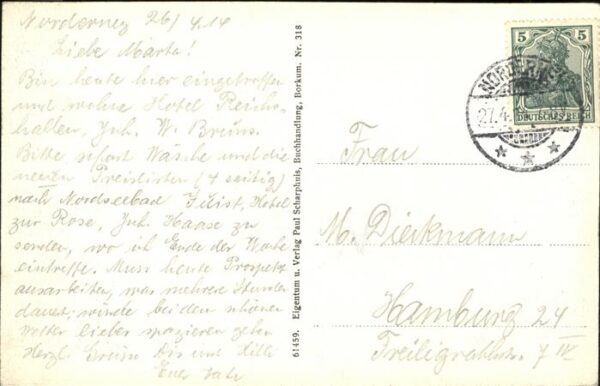 Norderney 26/4.14
Liebe Marta!
Bin heute hier eingetroffen
und wohne Hotel Reichs-
hallen, Inh. W. Bruns.
Bitte sofort Wäsche und die
neuen Preislisten (4 seitig)
nach Nordseebad Juist, Hotel
zur Rose, Inh. Haase zu
senden, wo ich Ende der Woche
eintreffe. Muss heute Prospekt
ausarbeiten, was mehrere Stunden
dauert, würde bei dem schönen
Wetter lieber spazieren gehen
Herzl. Grüsse Dir und
Euer
61459. Eigentum u. Verlag Paul Scharphuis, Buchhandlung, Borkum. Nr. 318
5 5
DEUTSCHES REICH
NORDERNEY
27.4.
Frau
M. Dieckmann
Hamburg 24
Freiligrathstr. 7 IV